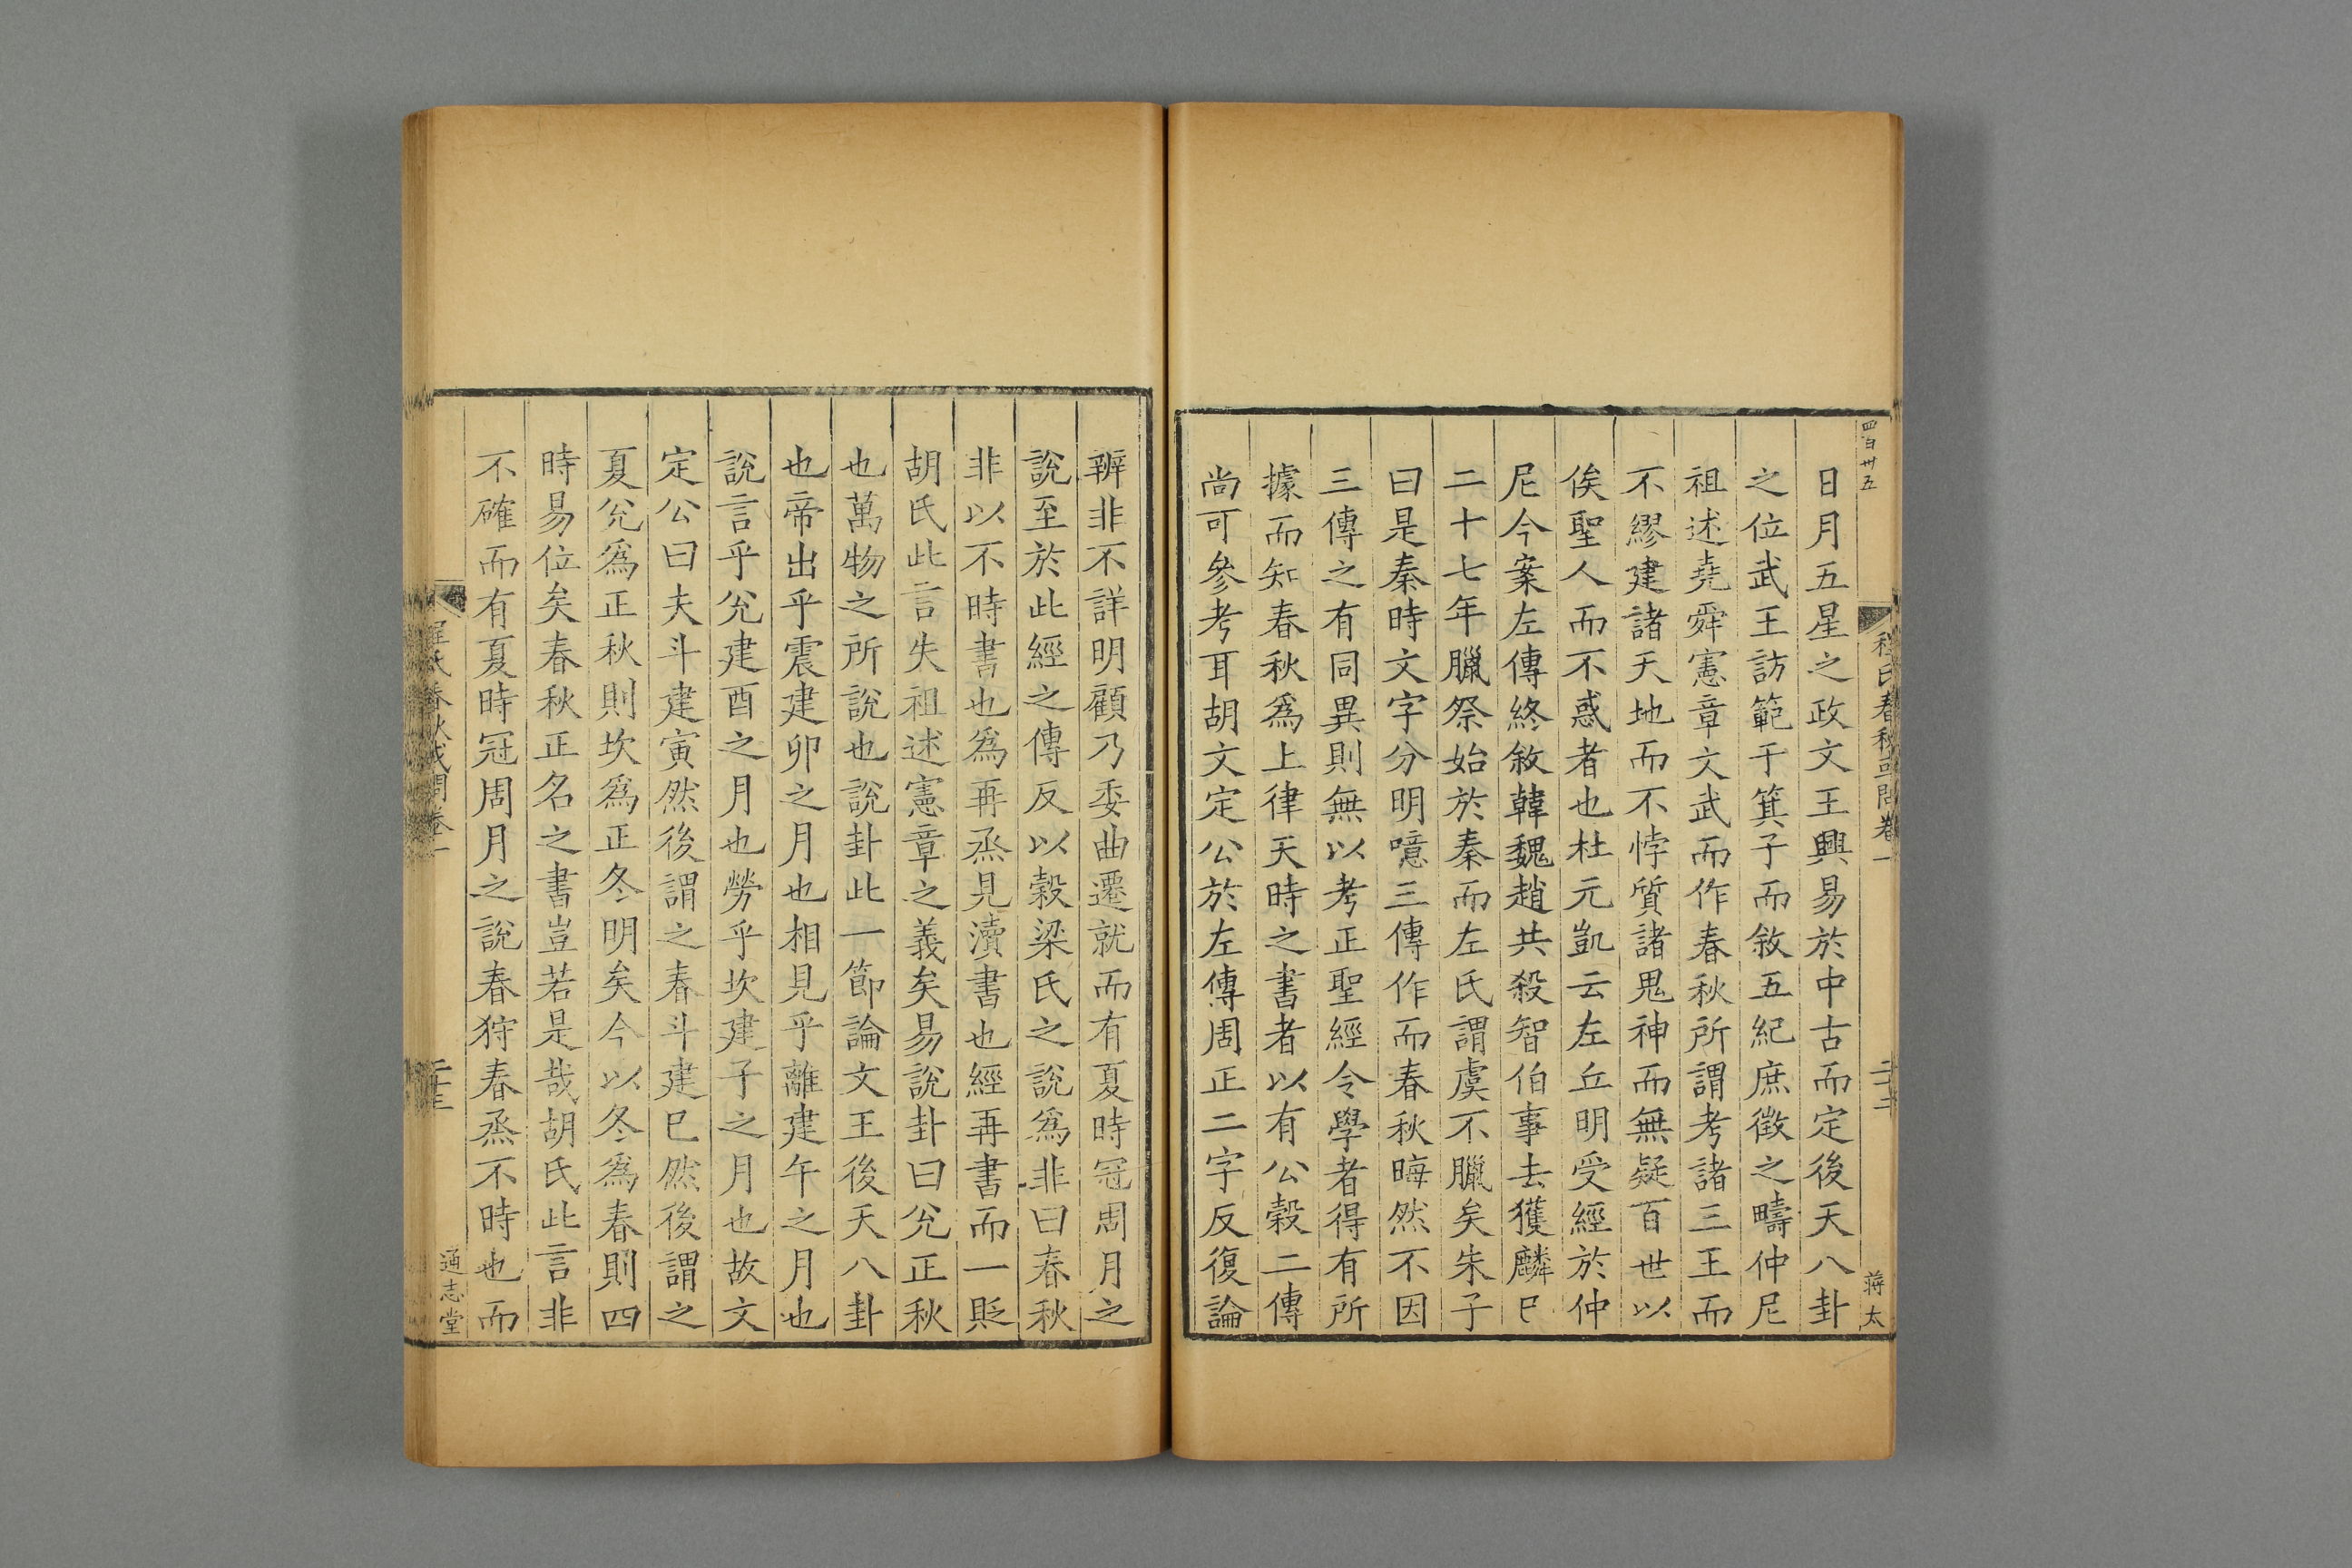 四百卅五
程氏春秋或問卷一
二十二
蔣太
日月五星之政文王興易於中古而定後天八卦
之位武王訪範于箕子而敘五紀庶徵之疇仲尼
祖述堯舜憲章文武而作春秋所謂考諸三王而
不繆建諸天地而不悖質諸鬼神而無疑百世以
俟聖人而不惑者也杜元凱云左丘明受經於仲
尼今案左傳終敘韓魏趙共殺智伯事去獲麟已
二十七年臘祭始於秦而左氏謂虞不臘矣朱子
曰是秦時文字分明噫三傳作而春秋晦然不因
三傳之有同異則無以考正聖經令學者得有所
據而知春秋為上律天時之書者以有公穀二傳
尚可參考耳胡文定公於左傳周正二字反復論
辨非不詳明顧乃委曲遷就而有夏時冠周月之
說至於此經之傳反以穀梁氏之說為非曰春秋
非以不時書也為再烝見瀆書也經再書而一貶
胡氏此言失祖述憲章之義矣易說卦曰兌正秋
也萬物之所說也說卦此一節論文王後天八卦
也帝出乎震建卯之月也相見乎離建午之月也
說言乎兌建酉之月也勞乎坎建子之月也故文
定公曰夫斗建寅然後謂之春斗建巳然後謂之
夏兌為正秋則坎為正冬明矣今以冬為春則四
時易位矣春秋正名之書豈若是哉胡氏此言非
不確而有夏時冠周月之說春狩春烝不時也而
程氏春秋或問卷一
通志堂